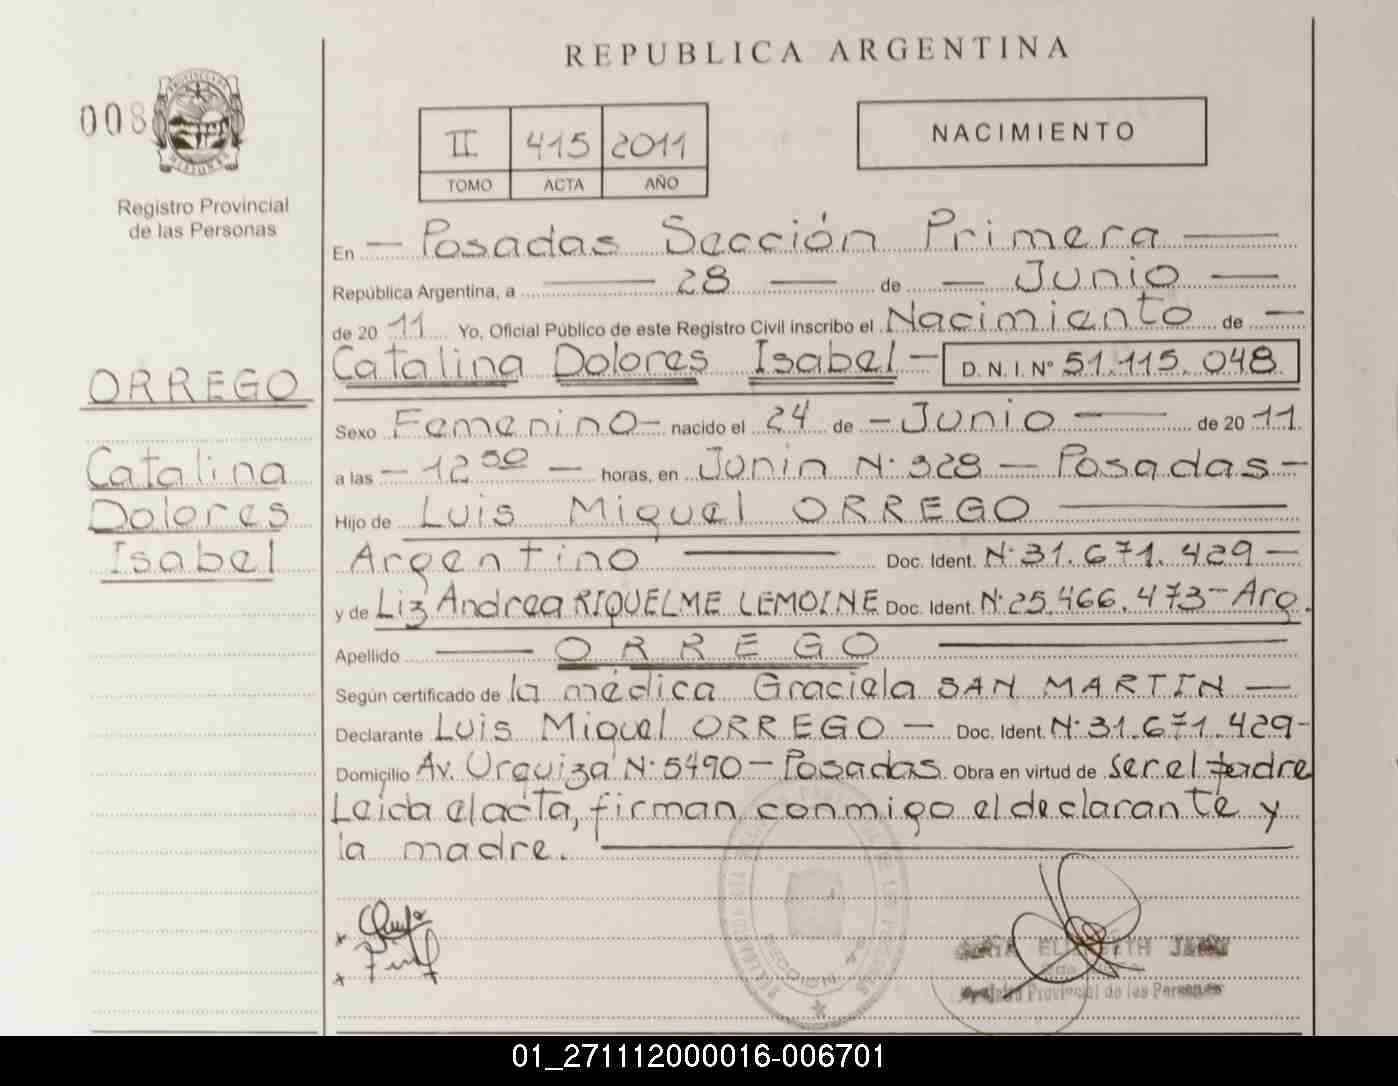 REPUBLICA ARGENTINA
008
Registro Provincial
de las Personas
II 415 2011
TOMO ACTA AÑO
NACIMIENTO
En - Posadas Sección Primera
República Argentina, a 28 de - Junio
de 20 11 Yo, Oficial Público de este Registro Civil inscribo el Nacimiento de -
Catalina Dolores Isabel - D. N. I. Nº 51.115.048
ORREGO
Catalina
Dolores
Isabel
Sexo Femenino - nacido el 24 de - Junio - de 20 11
a las - 12 00 - horas, en Junin N· 328 - Posadas -
Hijo de Luis Miguel ORREGO
Argentino Doc. Ident. N· 31.671.429 -
y de Liz Andrea RIQUELME LEMOINE Doc. Ident. N· 25.466.473 - Arg.
Apellido ORREGO
Según certificado de la médica Graciela SAN MARTIN -
Declarante Luis Miguel ORREGO - Doc. Ident. N· 31.671.429 -
Domicilio Av. Urquiza N· 5490 - Posadas. Obra en virtud de ser el padre
Leida el acta, firman conmigo el declarante y
la madre.
Provincial de las Personas
01_271112000016-006701